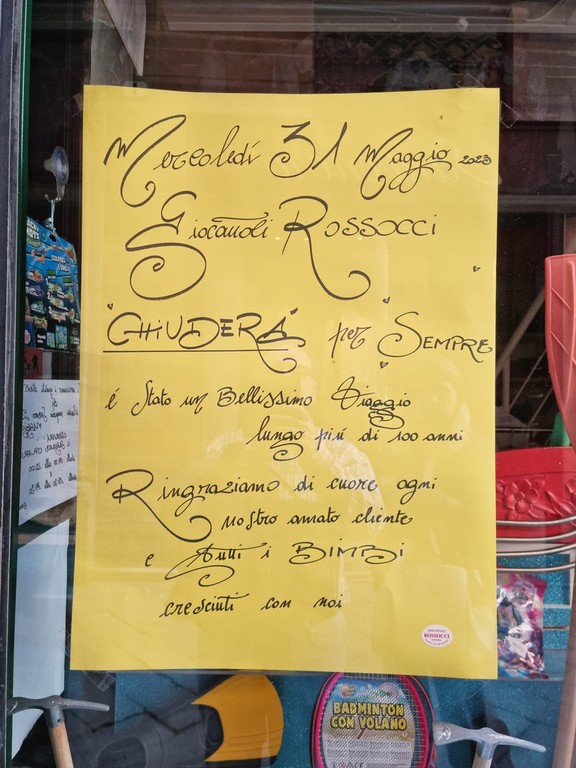 Mercoledí 31 Maggio 2023
Giocattoli Rossocci
"CHIUDERÁ per "SEMPRE"
é Stato un Bellissimo Viaggio
lungo piú di 100 anni
Ringraziamo di cuore ogni
nostro amato cliente
e tutti i BIMBi
cresciuti con noi
ROSSOCCI
BADMINTON
CON VOLANO